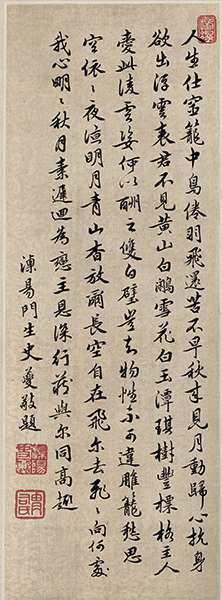 人生仕宦籠中鳥倦羽飛還苦不早秋來見月動歸心抗身
欲出浮雲表君不見黃山白鷴雪花白玉潭琪樹豐標格主人
愛此凌雲姿何以酬之雙白璧豈知物性不可違雕籠愁思
空依〻夜涼明月青山杳放爾長空自在飛尔去飛〻向何處
我心明〻秋月素遲迴為戀主恩深行藏與尔同高趣
溧陽門生史夔敬題